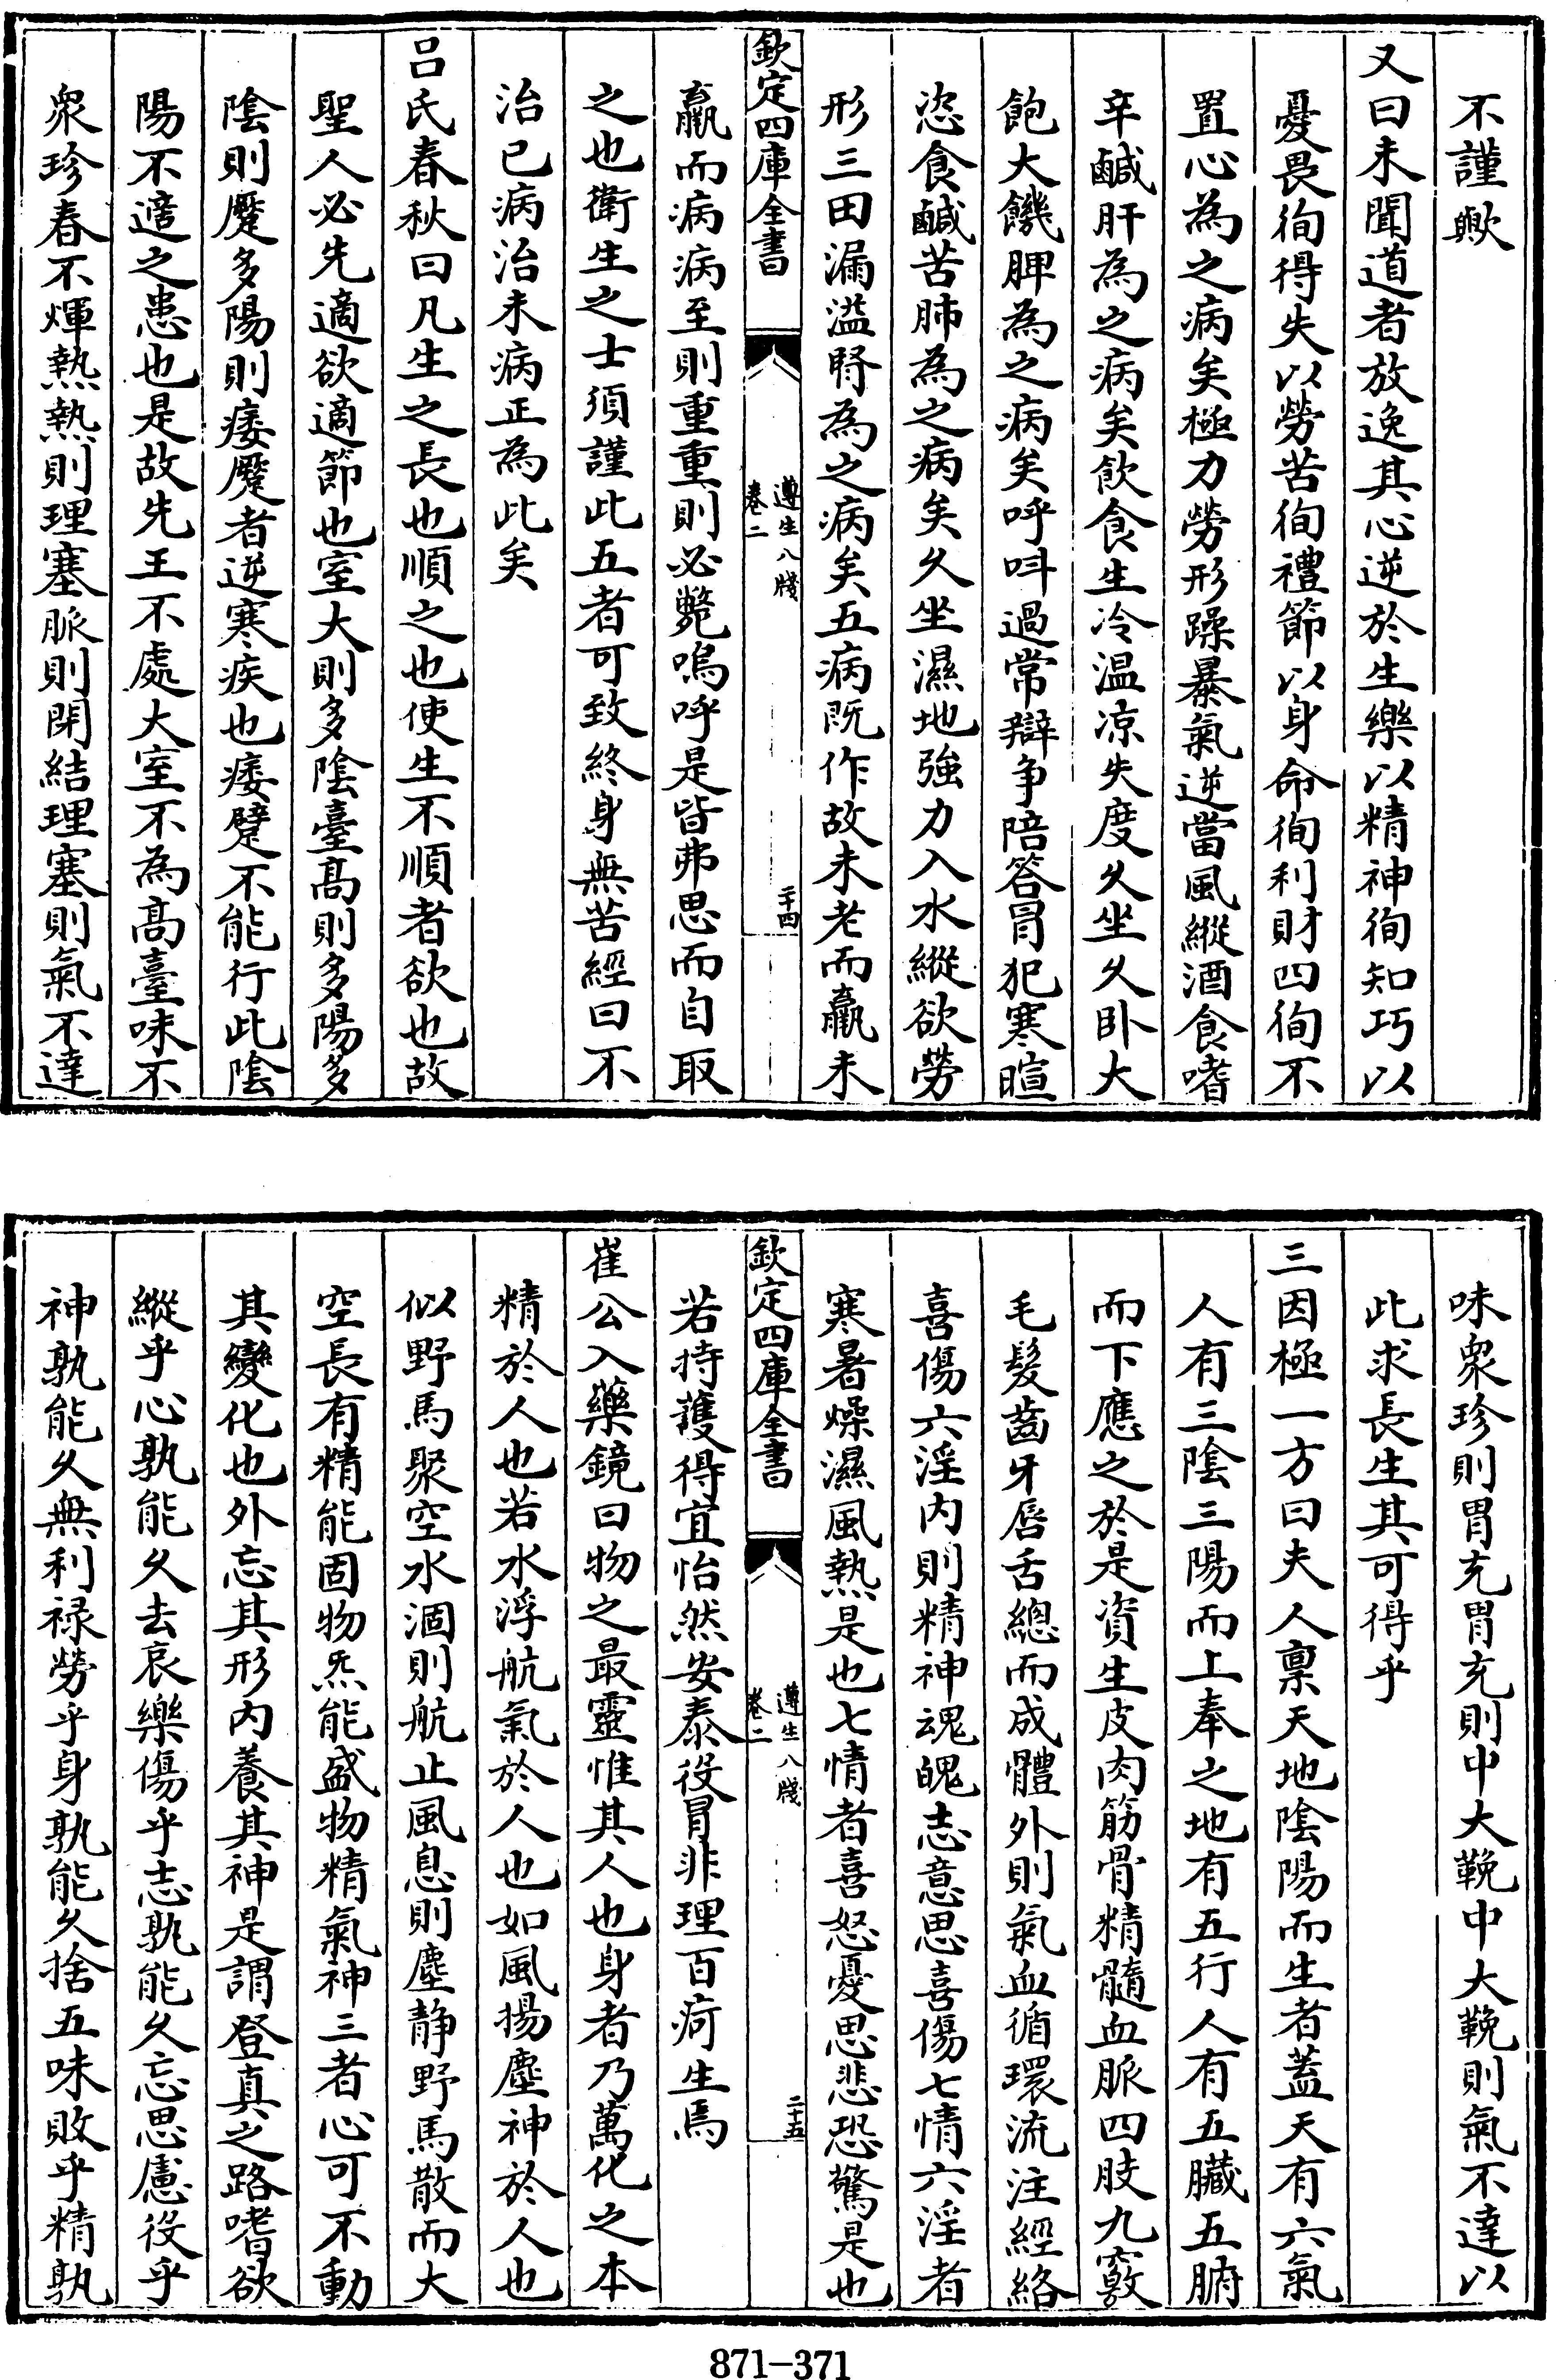 不謹歟
又曰未聞道者放逸其心逆於生樂以精神徇知巧以
憂畏徇得失以勞苦徇禮節以身命徇利財四徇不
置心為之病矣極力勞形躁暴氣逆當風縱酒食嗜
辛鹹肝為之病矣飲食生冷温凉失度久坐久卧大
飽大饑脾為之病矣呼呌過常辯争陪答冐犯寒暄
恣食鹹苦肺為之病矣久坐濕地強力入水縱欲勞
形三田漏溢腎為之病矣五病既作故未老而羸未
欽定四庫全書
遵生八牋
卷二
二十四
羸而病病至則重重則必斃嗚呼是皆弗思而自取
之也衛生之士須謹此五者可致終身無苦經曰不
治已病治未病正為此矣
吕氏春秋曰凡生之長也順之也使生不順者欲也故
聖人必先適欲適節也室大則多陰臺髙則多陽多
陰則蹷多陽則痿蹷者逆寒疾也痿躄不能行此陰
陽不適之患也是故先王不處大室不為髙臺味不
衆珍春不煇熱熱則理塞脈則閉結理塞則氣不達
味衆珍則胃充胃充則中大鞔中大鞔則氣不達以
此求長生其可得乎
三因極一方曰夫人禀天地陰陽而生者蓋天有六氣
人有三陰三陽而上奉之地有五行人有五臟五腑
而下應之於是資生皮肉筋骨精髓血脈四肢九竅
毛髮齒牙唇舌總而成體外則氣血循環流注經絡
喜傷六淫内則精神魂魄志意思喜傷七情六淫者
寒暑燥濕風熱是也七情者喜怒憂思悲恐驚是也
欽定四庫全書
遵生八牋
卷二
二十五
若持護得宜怡然安泰役冐非理百疴生焉
崔公入藥鏡曰物之最靈惟其人也身者乃萬化之本
精於人也若水浮航氣於人也如風揚塵神於人也
似野馬聚空水涸則航止風息則塵静野馬散而大
空長有精能固物炁能盛物精氣神三者心可不動
其變化也外忘其形内養其神是謂登真之路嗜欲
縱乎心孰能久去哀樂傷乎志孰能久忘思慮役乎
神孰能久無利禄勞乎身孰能久捨五味敗乎精孰
871-371